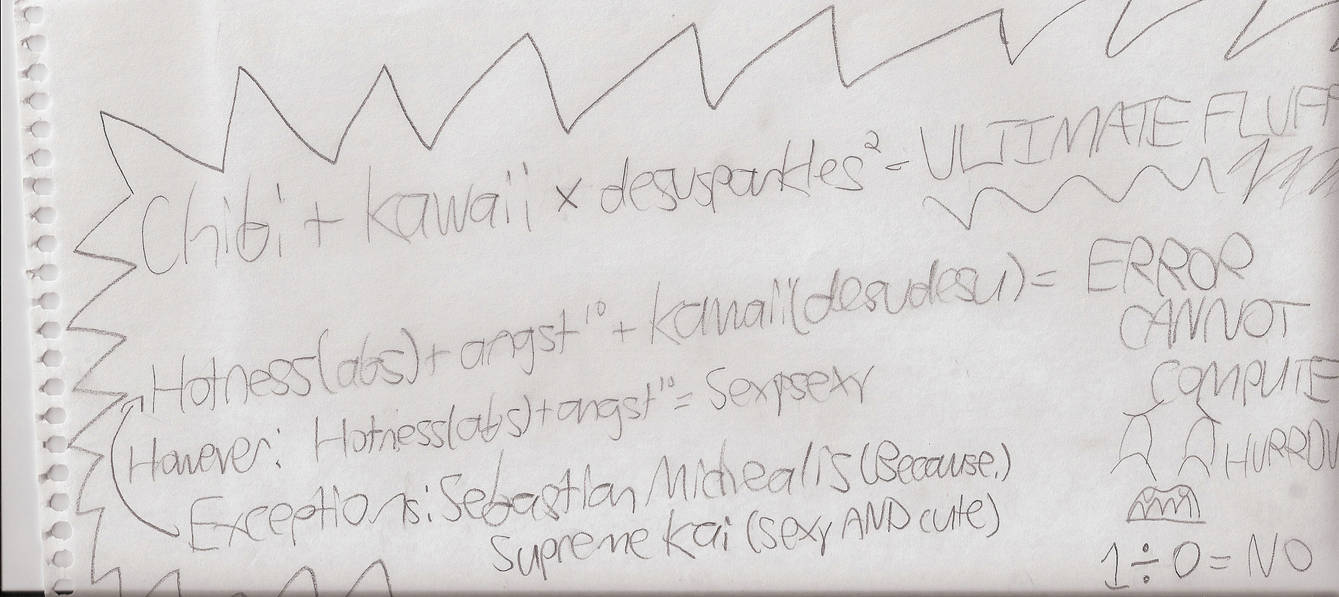 Chibi + kawaii × desusparkles² = ULTIMATE FLUFF
Hotness(abs) + angst¹⁰ + kawaii(desudesu) = ERROR
CANNOT
COMPUTE
However: Hotness(abs) + angst¹⁰ = Sexysexy
HURRDU
Exceptions: Sebastian Michealis (Because.)
Supreme Kai (sexy AND cute)
1 ÷ 0 = NO